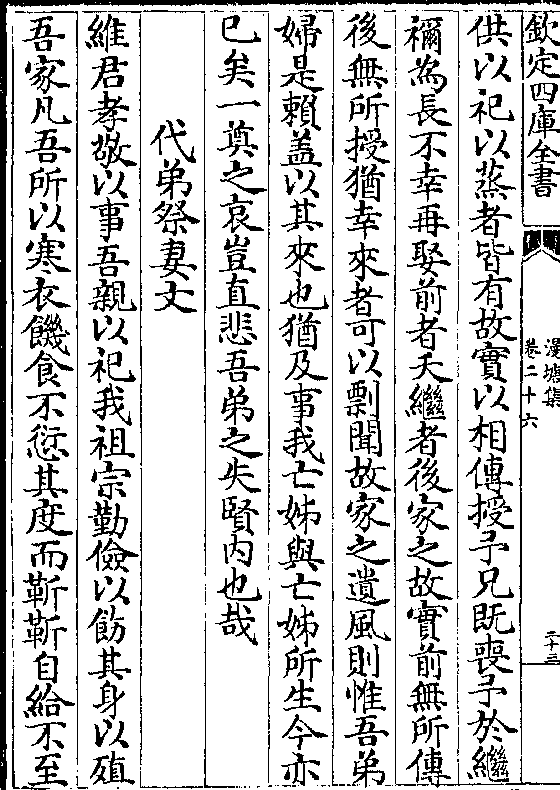 欽定四庫全書
漫塘集
卷二十六
三十三
供以祀以蒸者皆有故實以相傳授予兄既喪予於繼
禰為長不幸再娶前者夭繼者後家之故實前無所傳
後無所授猶幸來者可以剽聞故家之遺風則惟吾弟
婦是賴盖以其來也猶及事我亡姊與亡姊所生今亦
已矣一奠之哀豈直悲吾弟之失賢內也哉
代弟祭妻文
維君孝敬以事吾親以祀我祖宗勤儉以飭其身以殖
吾家凡吾所以寒衣饑食不愆其度而靳靳自給不至